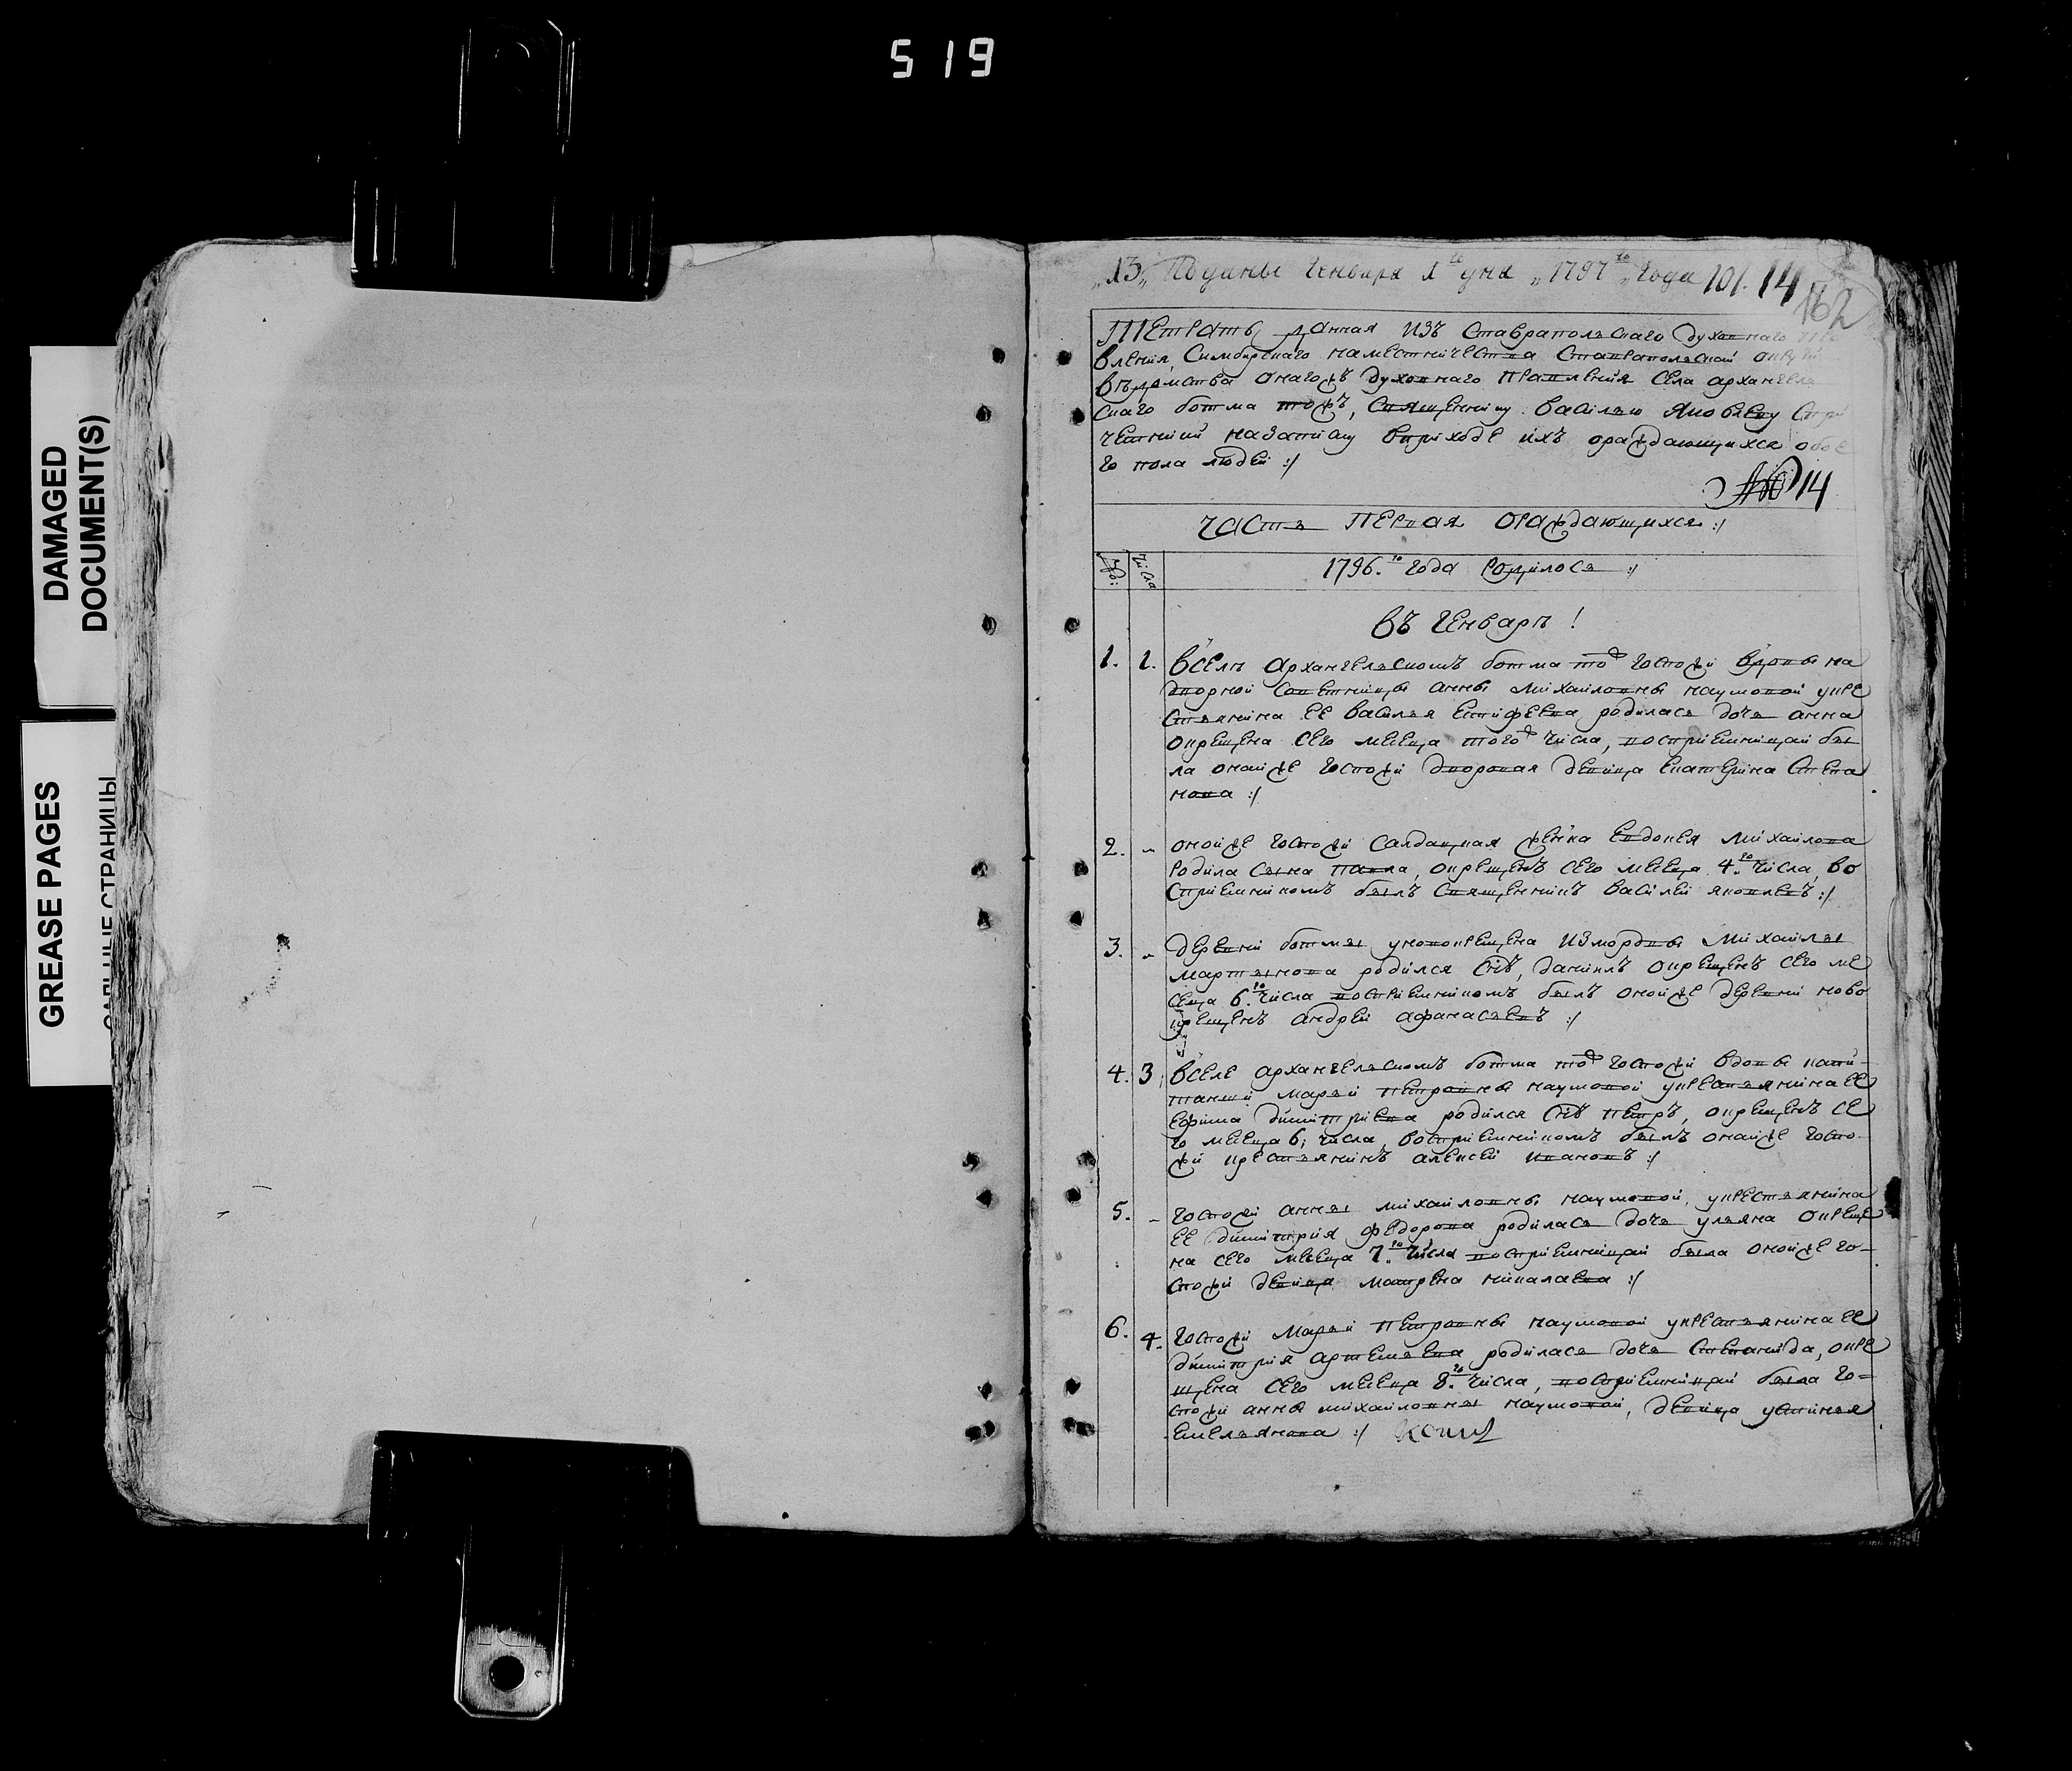 519
DAMAGED
DOCUMENT(S)
GREASE PAGES
САЛЬНЫЕ СТРАНИЦЫ
„13„ Поданы Генваря 1797го Года 101. 14
162
Тетрать данная изъ Ставрапольскаго духовнаго
вления, Симбирскаго наместничества Ставрапольской округи
въдомства онагожъ духовнаго правления села архангель
скаго ботма тожъ, Священнику василью Яковлеву
четники назаписку вприходе ихъ ораждающихся обое
го пола людей :/
14
часть первая ораждающихся :/
числа
1796.го года родилось :/
въ Генваръ !
1. 1. всель архангельскомъ ботма тож госпожи вдовы на
дворной советницы анны михайловны наумовой укре
стьянина ее василья естифеева родилась дочь анна
окрещена сего месеца тогож числа, восприемницей бы
ла онойже госпожи дворовая девица екатерина степа
нова :/
2. - онойже госпожи салдацкая женка евдокея михайлова
родила сына павла, окрещенъ сего месеца 4.го числа, во
сприемникомъ былъ священникъ василей яковлевъ :/
3. - деревни ботмы уновокрещена измордвы михайлы
мартынова родился снъ, данилъ окрещенъ сего ме
сеца 6.го числа восприемникомъ былъ онойже деревни ново
крещенъ андрей афанасьевъ :/
4. 3. вселе архангельскомъ ботма тож госпожи вдовы капи-
танши марьи петровны наумовой укрестьянина ее
ефима димитриева родился снъ петръ, окрещенъ се
го месеца 6, числа, восприемникомъ былъ онойже госпо-
жи крестьянинъ алексей ивановъ :/
5. - госпожи анны михайловны наумовой, укрестьянина
ее димитрия федорова родилась дочь ульяна окреще
на сего месеца 7.го числа восприемницей была онойже го-
спожи девица матрена николаева :/
6. 4. госпожи марьи петровны наумовой укрестьянина ее
димитрия артемьева родилась дочь степанида, окре
щена сего месеца 8.го числа, восприемницей была го=
спожи анны михайловны наумовой, девица устинья
емельянова :/